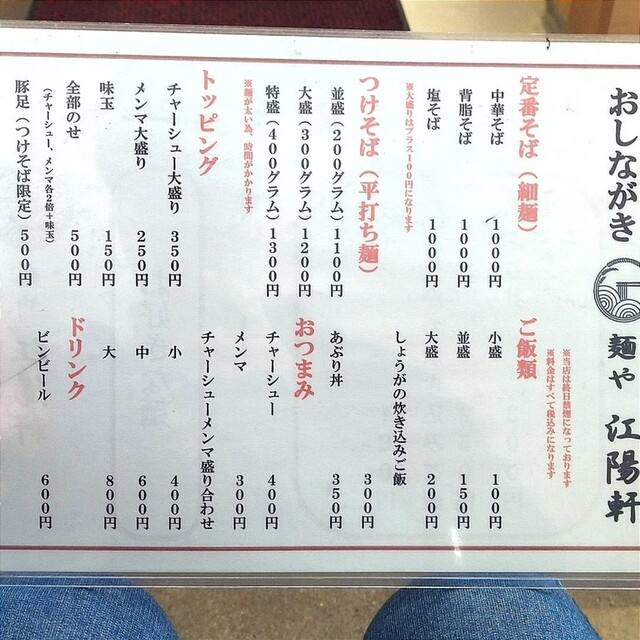 おしながき
麺や 江陽軒
※当店は終日禁煙になっております
※料金はすべて税込みになります
定番そば（細麺）
中華そば 1000円
背脂そば 1000円
塩そば 1000円
※大盛りはプラス100円になります
つけそば（平打ち麺）
並盛（200グラム）1100円
大盛（300グラム）1200円
特盛（400グラム）1300円
※麺が太い為、時間がかかります
トッピング
チャーシュー大盛り 350円
メンマ大盛り 250円
味玉 150円
全部のせ 500円
（チャーシュー、メンマ各2倍＋味玉）
豚足（つけそば限定）500円
ご飯類
小盛 100円
並盛 150円
大盛 200円
しょうがの炊き込みご飯
300円
あぶり丼 350円
おつまみ
チャーシュー 400円
メンマ 300円
チャーシューメンマ盛り合わせ
小 400円
中 600円
大 800円
ドリンク
ビンビール 600円